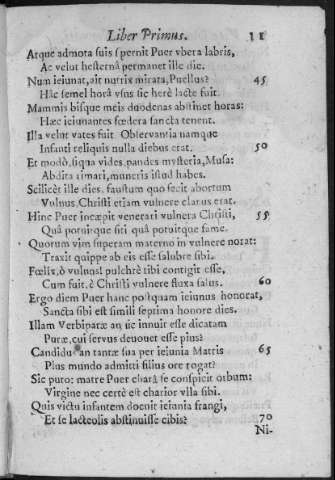 Liber Primus. 11
Atque admota suis spernit Puer vbera labris,
Ac velut hesternâ permanet ille die.
Num ieiunat, ait nutrix mirata, Puellus? 45
Hâc semel horâ vsus sic herè lacte fuit.
Mammis bisque meis duodenas abstinet horas:
Hæc ieiunantes fœdera sancta tenent.
Illa velut vates fuit. Observantia namque
Infanti reliquis nulla diebus erat. 50
Et modò, siqua vides, pandes mysteria, Musa:
Abdita rimari, muneris istud habes.
Scilicèt ille dies, faustum quo fecit abortum
Vulnus, Christi etiam vulnere clarus erat.
Hinc Puer incæpit venerari vulnera Christi, 55
Quâ potuitque siti quâ potuitque fame.
Quorum vim superam materno in vulnere norat:
Traxit quippe ab eis esse salubre sibi.
Fœlix, ô vulnus! pulchrè tibi contigit esse,
Cum fuit, è Christi vulnere fluxa salus. 60
Ergo diem Puer hanc postquam ieiunus honorat,
Sancta sibi est simili septima honore dies.
Illam Verbiparæ an ûc innuit esse dicatam
Puræ, cui servus devouet esse pius?
Candidus an tantæ sua per ieiunia Matris 65
Plus mundo admitti filius ore rogat?
Sic puto: matre Puer charâ se conspicit orbum:
Virgine nec certè est charior vlla sibi.
Quis victu infantem docuit ieiunia frangi,
Et se lacteolis abstinuisse cibis? 70
Ni-